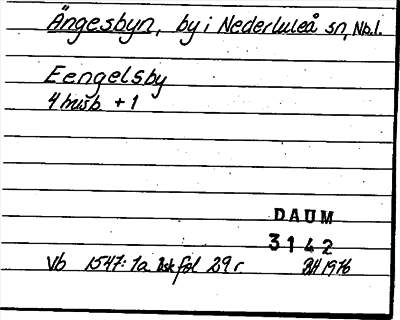 Ängesbyn, by i Nederluleå sn, Nb.l.
Eengelsby
4 husb + 1
DAUM
3142
Vb 1547: 1a fol 29 r. 1976